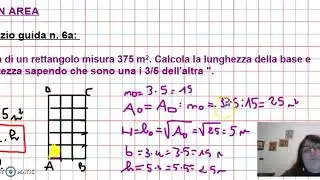 N AREA
zio guida n. 6a:
di un rettangolo misura 375 m². Calcola la lunghezza della base e
tezza sapendo che sono una i 3/5 dell'altra ".
D C
A B
m₀ = 3·5 = 15
A₀ = A : m₀ = 375:15 = 25 m²
l₀ = √A₀ = √25 = 5 m
b = 3·u = 3·5 = 15 m
h = 5·u = 5·5 = 25 m